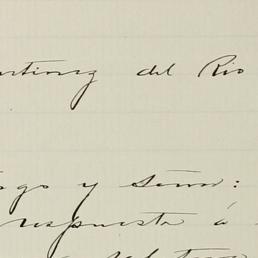 rtinez del Rio
igo y Señor:
respuesta á